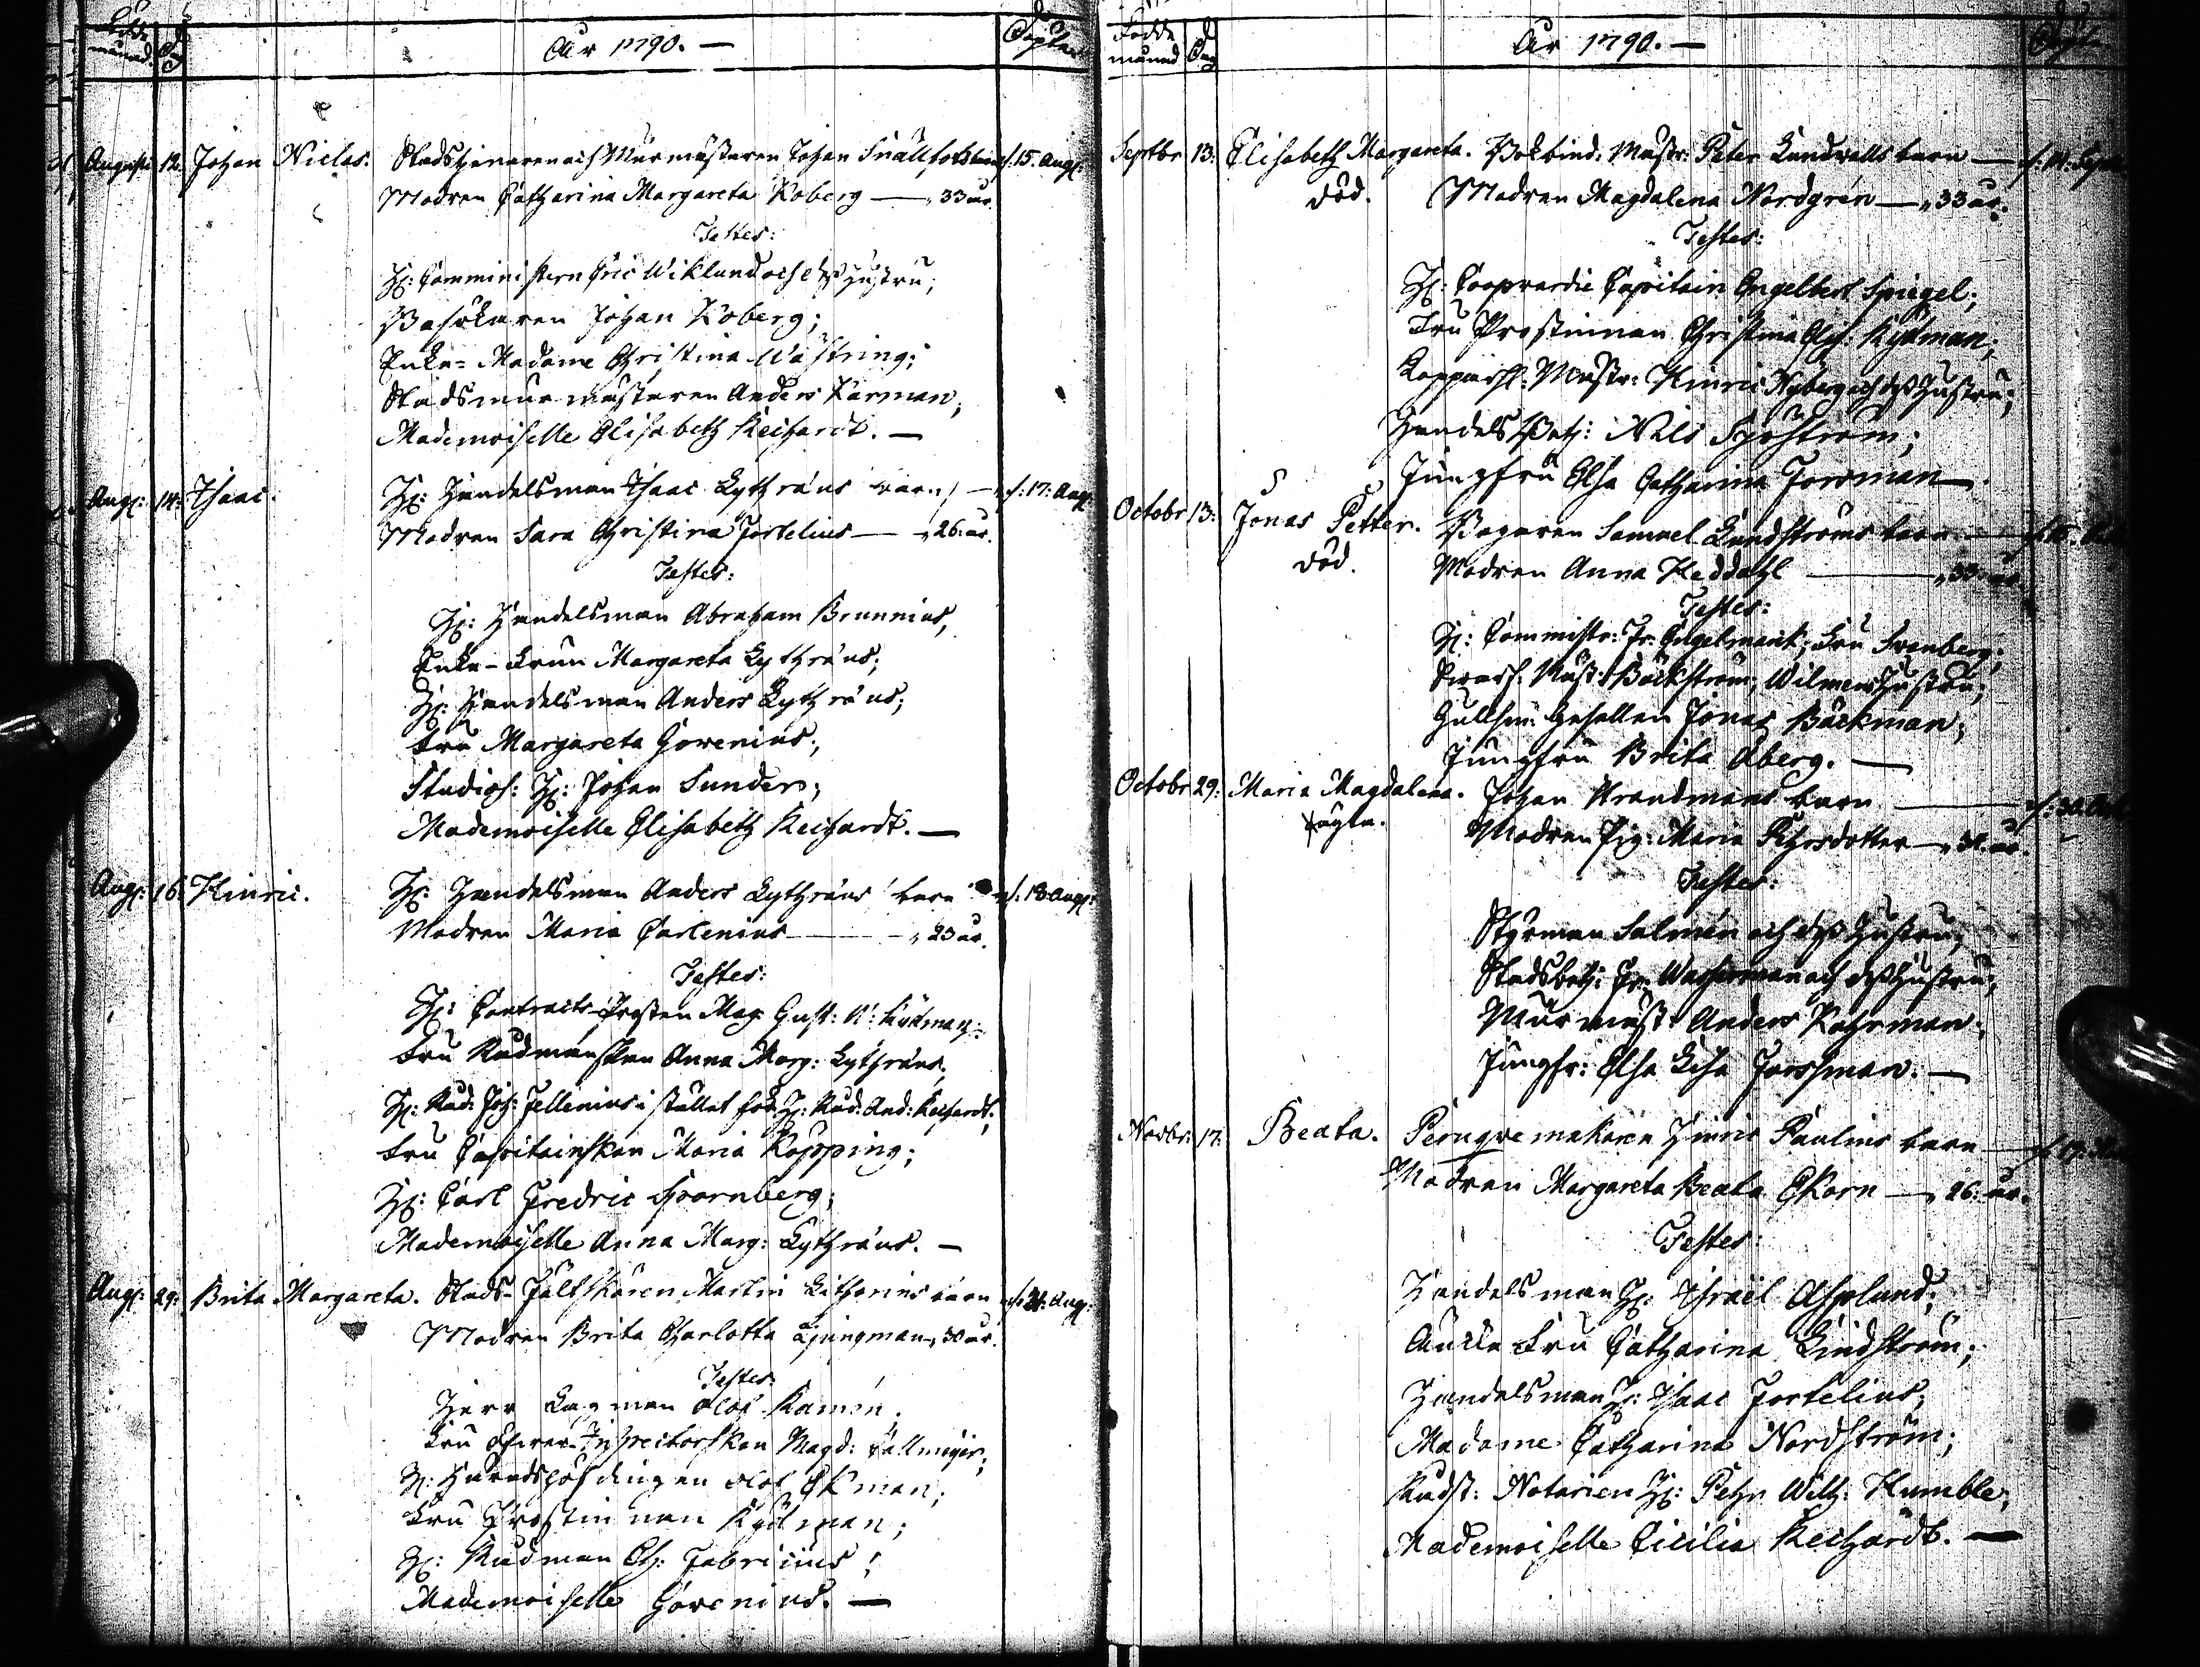 Födde månad Dag
År 1790. —
Döpte
Augusti 12. Johan Niclas. Stadstjenaren och Murmästaren Johan Snällfots barn d. 15. Aug:
Modren Catharina Margareta Koberg — 33 år.
Testes:
H: Comministern Eric Wiklund och dess hustru;
Besökaren Johan Koberg;
Enke-Madame Christina Wästring;
Stadsmurmästaren Anders Karman;
Mademoiselle Elisabeth Reichardt. —
Aug: 14: Isaac. H: Handelsman Isaac Lythræus barn, — d: 17: Aug:
Modren Sara Christina Fortelius — 26: år.
Testes:
H: Handelsman Abraham Brunnius,
Enke-Frun Margareta Lythræus;
H: Handelsman Anders Lythræus;
Fru Margareta Govenius;
Studios: H: Johan Sunder;
Mademoiselle Elisabeth Reichardt. —
Aug: 16: Hinric. H: Handelsman Anders Lythræus' barn d: 18 Aug:
Modren Maria Carlenius — 23 år.
Testes:
H: Contracts-Prosten Mag: Gust: Kykman;
Fru Rådmanskan Anna Marg: Lythræus,
H: Råd: Joh: Fellenius i stället för H: Råd: And: Reichardt;
Fru Capitainskan Maria Köpping;
H: Carl Fredric Sparnberg;
Mademoiselle Anna Marg: Lythræus. —
Aug: 29: Brita Margareta. Stads-Fältskären Martin Lithenius barn d: 31: Aug:
Modren Brita Charlotta Ljungman, 30 år.
Testes
Herr Lagman Olof Ramén,
Fru Inspectorskan Magd:
H: Häradshöfdingen Olof Ekman;
Fru Prostinnan Kykman;
H: Rådman Ch: Fabricius;
Mademoiselle Govenius. —
Födde månad Dag
År 1790. —
Septbr 13: Elisabeth Margareta. Bokbind: Mäst: Peter Lundwalls barn — d: 14. Septe
död. Modren Magdalena Nordgrén — 33 år.
Testes:
H: Coopvardie Capitain Engelbert Spiegel;
Fru Prostinnan Christina Kykman;
Kopparsl: Mäst: Hinric Nyberg och dess Hustru;
Handels Betj: Nils Sjöström;
Jungfru Elsa Catharina Forsman —.
Octobr 13: Jonas Petter. Bagaren Samuel Lundströms barn
död. Modren Anna Heddahl — 33 år.
Testes:
H: Comministr: Engelmark; Fru Svanberg;
Swarf: Mäst: Bäckström, Wilmers hustru;
Gullsm: Gesällen Jonas Bäckman;
Jungfru Brita Åberg. —
Octobr 29: Maria Magdalena. Johan Strandmans barn — d: 30. Oct
oägta. Modren Pig: Maria Pehrsdotter — 31 år.
Testes:
Styrman Salmén och dess Hustru;
Stadsbetj: Wasserman och dess Hustru;
Murmäst: Anders Kahrman;
Jungfr: Elsa Lisa Forssman. —
Novbr: 17: Beata. Peruqvemakaren Hinric Paulins barn — d: 19. Nov
Modren Margareta Beata Ekorn — 26: år.
Testes:
Handelsman H: Israël Asplund;
Enke Fru Catharina Lindström;
Handelsman H: Isaac Fortelius;
Madame Catharina Nordström;
Rådst: Notarien H: Pehr Wilh: Humble;
Mademoiselle Cicilia Reichardt. —